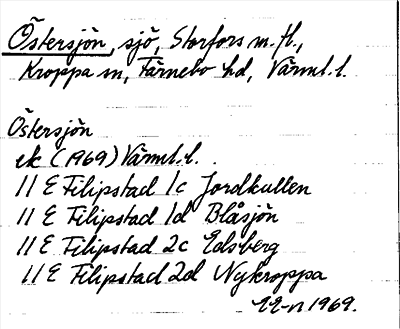 Östersjön, sjö, Storfors m.fl.,
Kroppa sn, Färnebo hd, Värml.l.
Östersjön
ek (1969) Värml.l.
11 E Filipstad 1c Jordkullen
11 E Filipstad 1d Blåsjön
11 E Filipstad 2c Edsberg
11 E Filipstad 2d Nykroppa
1969.